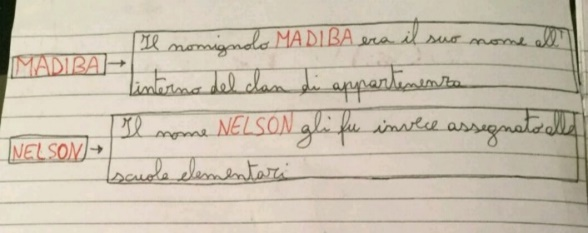 MADIBA → Il nomignolo MADIBA era il suo nome all'
interno del clan di appartenenza
NELSON → Il nome NELSON gli fu invece assegnato alle
scuole elementari